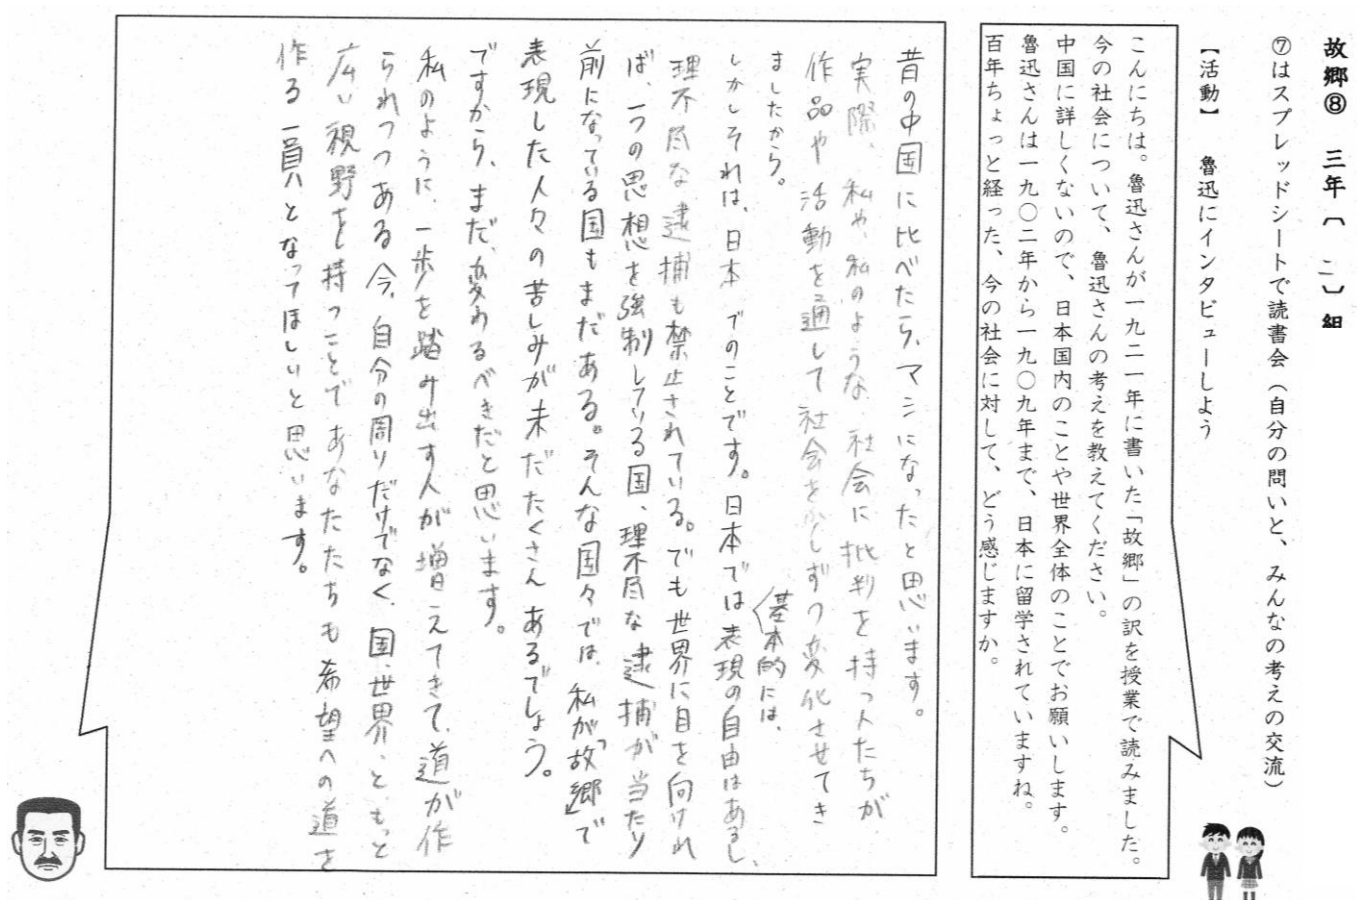 故郷⑧　三年〔　二　〕組
⑦はスプレッドシートで読書会（自分の問いと、みんなの考えの交流）
【活動】　魯迅にインタビューしよう
こんにちは。魯迅さんが一九二一年に書いた「故郷」の訳を授業で読みました。
今の社会について、魯迅さんの考えを教えてください。
中国に詳しくないので、日本国内のことや世界全体のことでお願いします。
魯迅さんは一九〇二年から一九〇九年まで、日本に留学されていますね。
百年ちょっと経った、今の社会に対して、どう感じますか。
昔の中国に比べたら、マシになったと思います。
実際、私や、私のような社会に批判を持つ人たちが
作品や活動を通して社会を少しずつ変化させてき
ましたから。
しかしそれは、日本でのことです。日本では表現の自由はあるし、
基本的には、
理不尽な逮捕も禁止されている。でも世界に目を向けれ
ば、一つの思想を強制している国、理不尽な逮捕が当たり
前になっている国もまだある。そんな国々では、私が「故郷」で
表現した人々の苦しみが未だたくさんあるでしょう。
ですから、まだ、変わるべきだと思います。
私のように、一歩を踏み出す人が増えてきて、道が作
られつつある今、自分の周りだけでなく、国、世界、と、もっと
広い視野を持つことであなたたちも希望への道を
作る一員、となってほしいと思います。